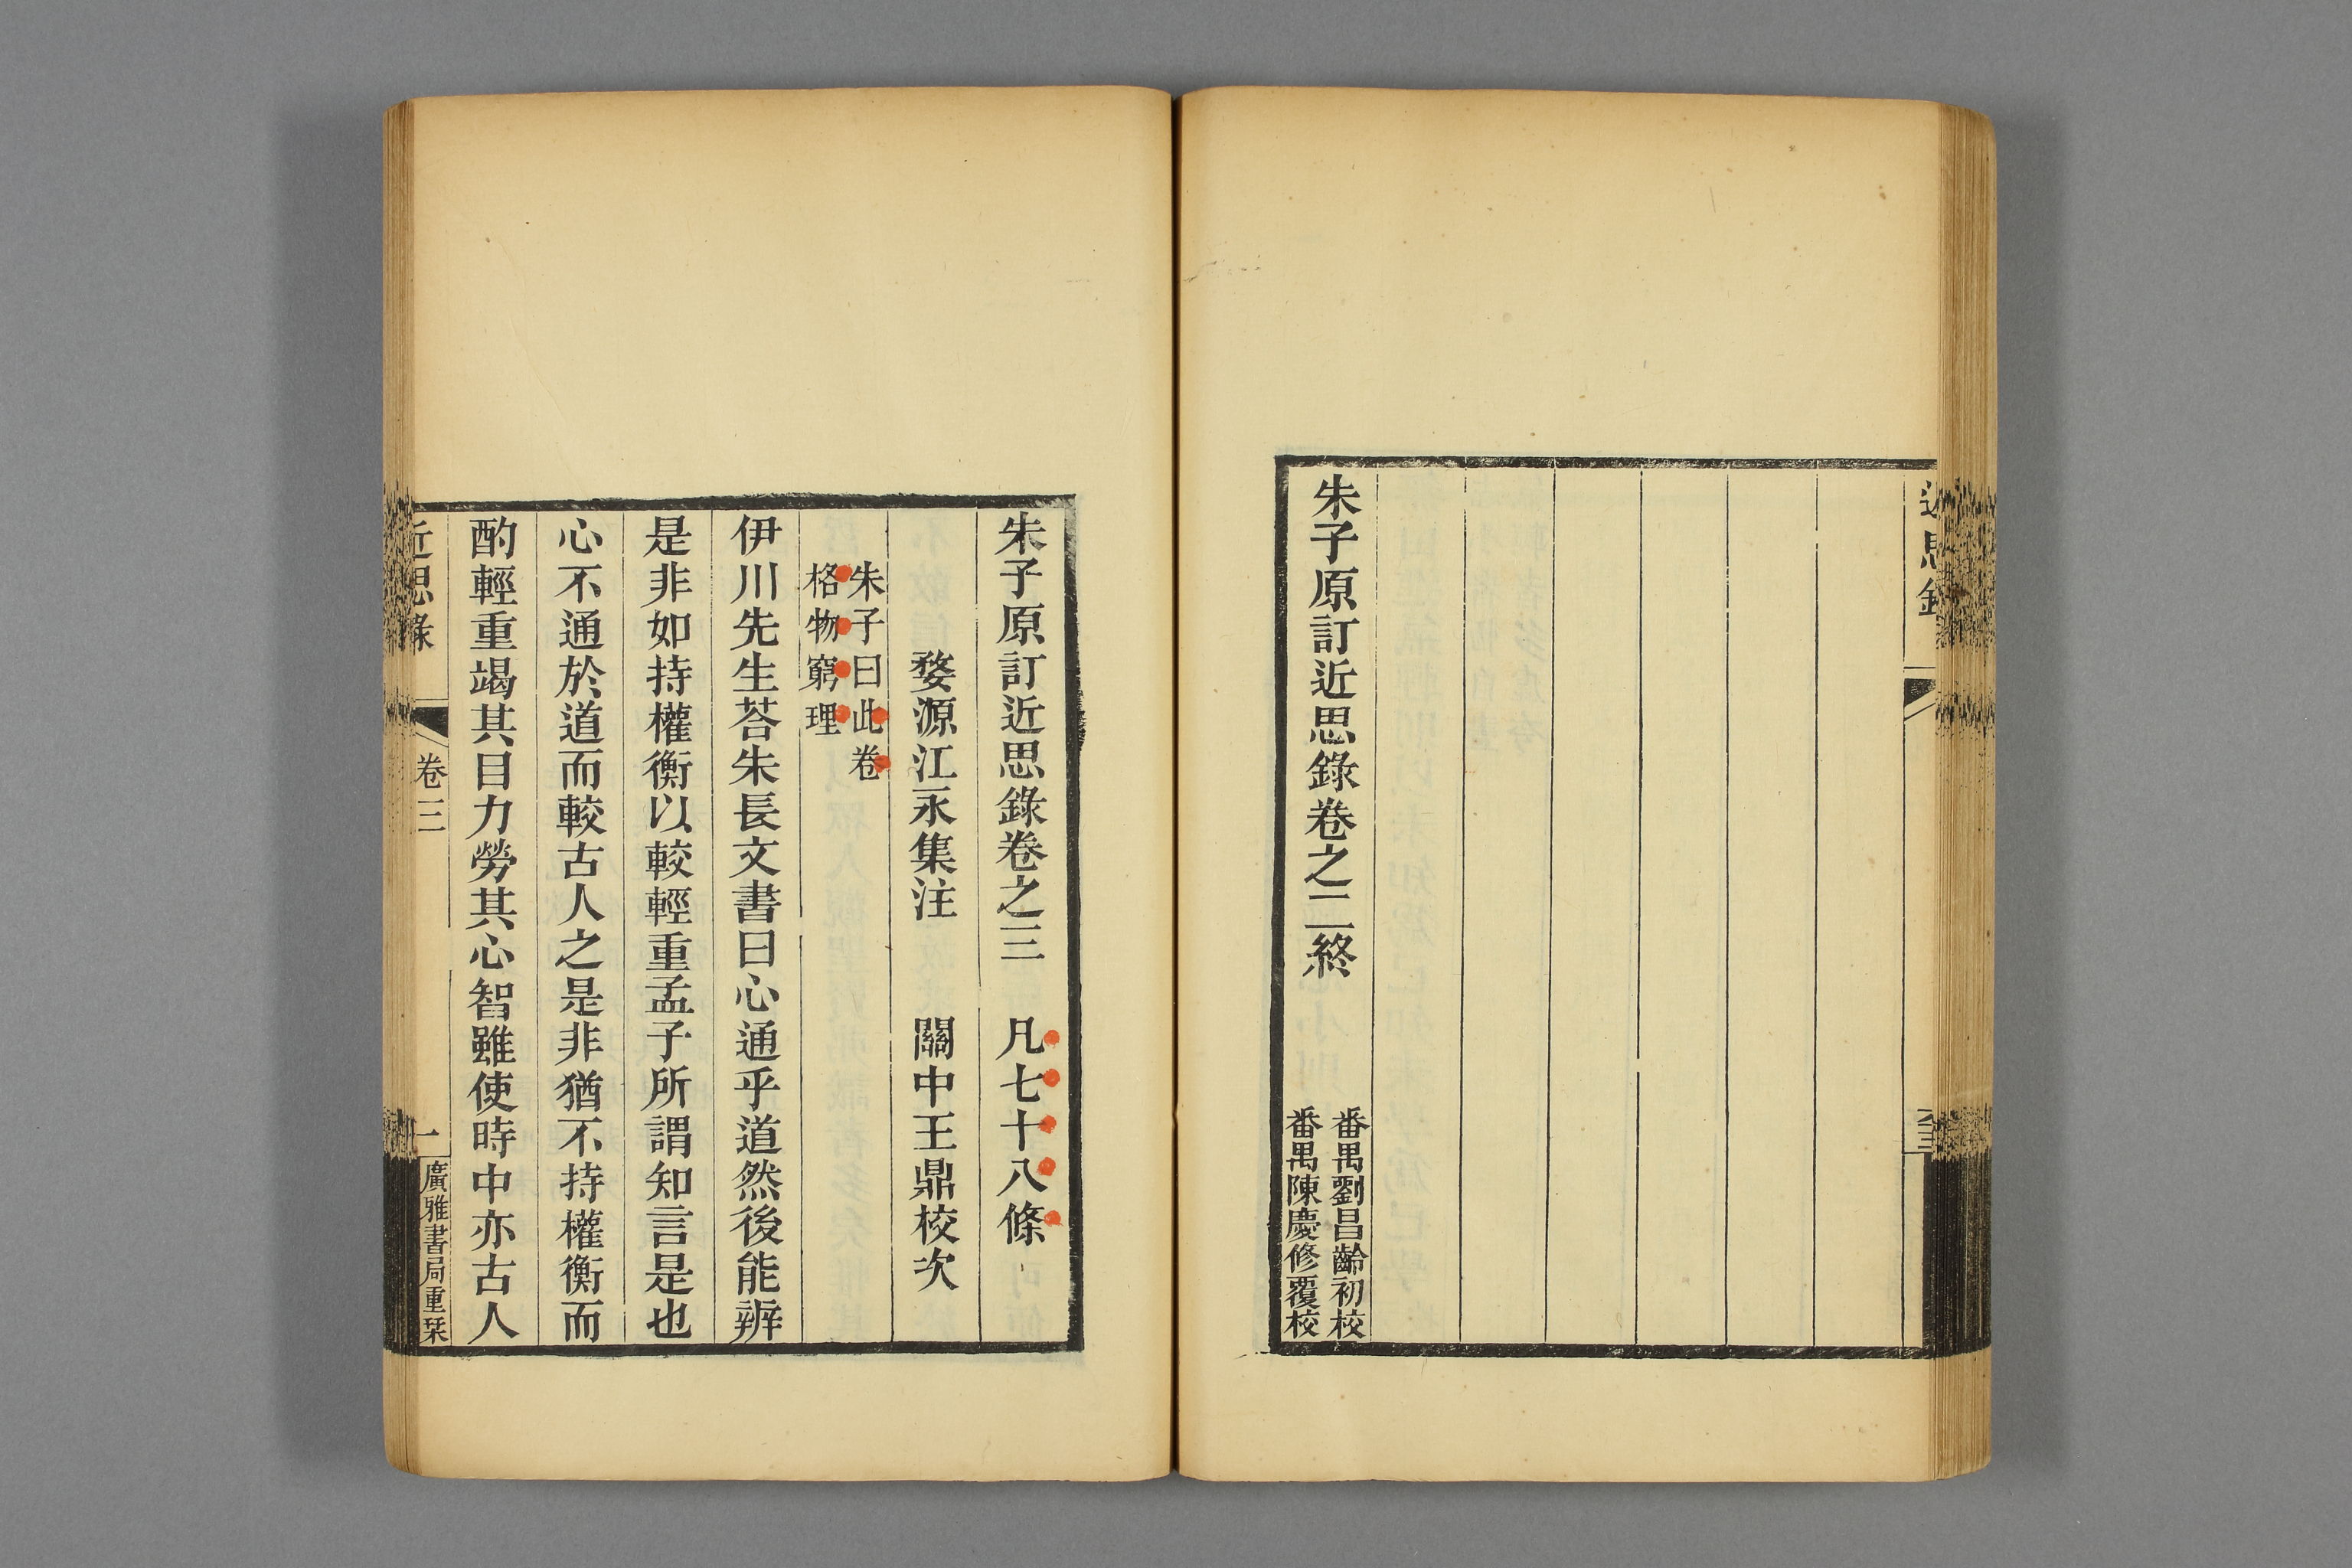 近思錄
朱子原訂近思錄卷之二終
番禺劉昌齡初校
番禺陳慶修覆校
朱子原訂近思錄卷之三　凡七十八條
婺源江永集注　　關中王鼎校次
朱子曰此卷
格物窮理
伊川先生荅朱長文書曰心通乎道然後能辨
是非如持權衡以較輕重孟子所謂知言是也
心不通於道而較古人之是非猶不持權衡而
酌輕重竭其目力勞其心智雖使時中亦古人
近思錄
卷三
一
廣雅書局重栞